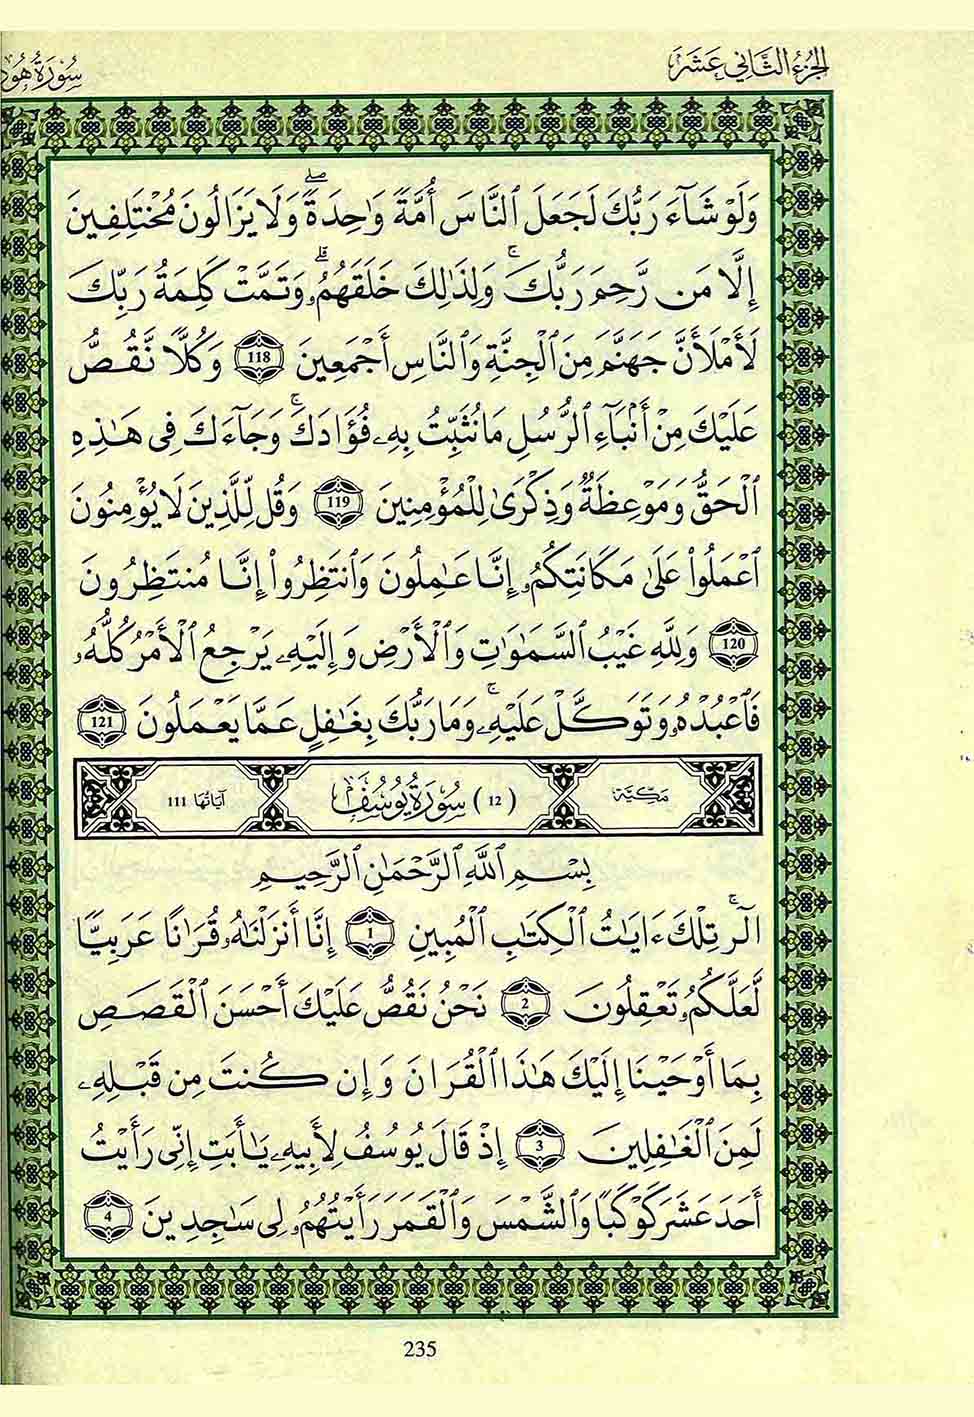 الجزء الثاني عشر
سورة هود
وَلَوْ شَآءَ رَبُّكَ لَجَعَلَ ٱلنَّاسَ أُمَّةً وَٰحِدَةً ۖ وَلَا يَزَالُونَ مُخْتَلِفِينَ
إِلَّا مَن رَّحِمَ رَبُّكَ ۚ وَلِذَٰلِكَ خَلَقَهُمُۥ ۗ وَتَمَّتْ كَلِمَةُ رَبِّكَ
لَأَمْلَأَنَّ جَهَنَّمَ مِنَ ٱلْجِنَّةِ وَٱلنَّاسِ أَجْمَعِينَ 118 وَكُلًّا نَّقُصُّ
عَلَيْكَ مِنْ أَنۢبَآءِ ٱلرُّسُلِ مَا نُثَبِّتُ بِهِۦ فُؤَادَكَ ۚ وَجَآءَكَ فِى هَٰذِهِ
ٱلْحَقُّ وَمَوْعِظَةٌ وَذِكْرَىٰ لِلْمُؤْمِنِينَ 119 وَقُل لِّلَّذِينَ لَا يُؤْمِنُونَ
ٱعْمَلُوا۟ عَلَىٰ مَكَانَتِكُمُۥ إِنَّا عَٰمِلُونَ وَٱنتَظِرُوا۟ إِنَّا مُنتَظِرُونَ
120 وَلِلَّهِ غَيْبُ ٱلسَّمَٰوَٰتِ وَٱلْأَرْضِ وَإِلَيْهِۦ يَرْجِعُ ٱلْأَمْرُ كُلُّهُۥ
فَٱعْبُدْهُۥ وَتَوَكَّلْ عَلَيْهِۦ ۚ وَمَا رَبُّكَ بِغَٰفِلٍ عَمَّا يَعْمَلُونَ 121
مكية
(12) سورة يوسف
آياتها 111
بِسْمِ ٱللَّهِ ٱلرَّحْمَٰنِ ٱلرَّحِيمِ
الٓر ۚ تِلْكَ ءَايَٰتُ ٱلْكِتَٰبِ ٱلْمُبِينِ 1 إِنَّآ أَنزَلْنَٰهُۥ قُرَٰنًا عَرَبِيًّا
لَّعَلَّكُمُۥ تَعْقِلُونَ 2 نَحْنُ نَقُصُّ عَلَيْكَ أَحْسَنَ ٱلْقَصَصِ
بِمَا أَوْحَيْنَا إِلَيْكَ هَٰذَا ٱلْقُرَانَ وَإِن كُنتَ مِن قَبْلِهِۦ
لَمِنَ ٱلْغَٰفِلِينَ 3 إِذْ قَالَ يُوسُفُ لِأَبِيهِۦ يَٰأَبَتِ إِنِّى رَأَيْتُ
أَحَدَ عَشَرَ كَوْكَبًا وَٱلشَّمْسَ وَٱلْقَمَرَ رَأَيْتُهُمُۥ لِى سَٰجِدِينَ 4
235